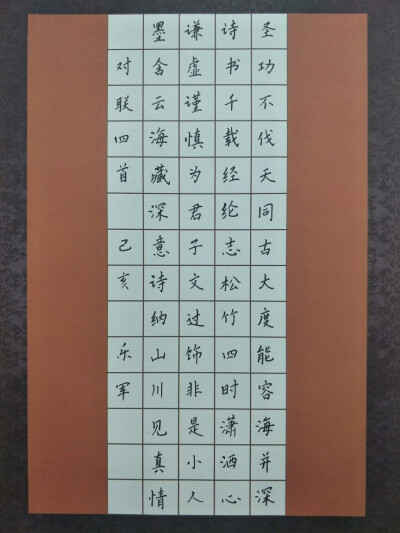 圣功不伐天同古大度能容海并深
诗书千载经纶志松竹四时潇洒心
谦虚谨慎为君子文过饰非是小人
墨含云海藏深意诗纳山川见真情
对联四首 己亥 乐军